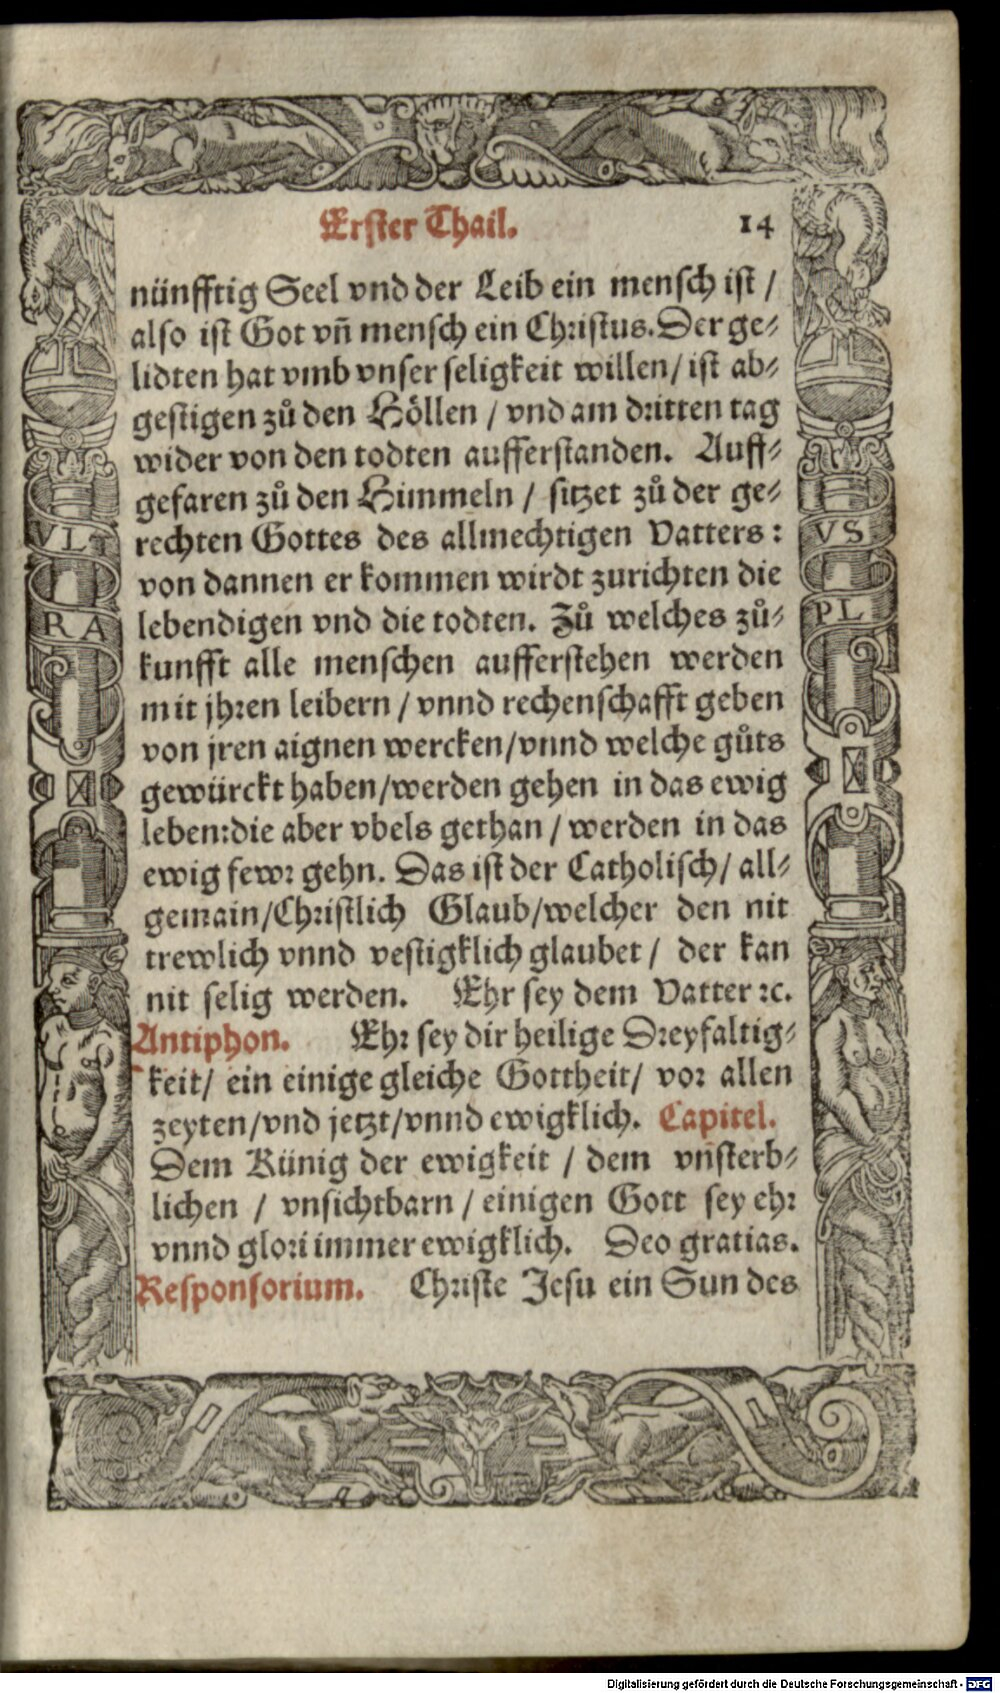 Erster Thail. 14
nünfftig Seel vnd der Leib ein mensch ist /
also ist Got vñ mensch ein Christus. Der ge⸗
lidten hat vmb vnser seligkeit willen / ist ab⸗
gestigen zů den Höllen / vnd am dritten tag
wider von den todten aufferstanden. Auff⸗
gefaren zů den Himmeln / sitzet zů der ge⸗
rechten Gottes des allmechtigen Vatters :
von dannen er kommen wirdt zurichten die
lebendigen vnd die todten. Zů welches zů⸗
kunfft alle menschen aufferstehen werden
mit jhren leibern / vnnd rechenschafft geben
von jren aignen wercken / vnnd welche gůts
gewürckt haben / werden gehen in das ewig
leben: die aber vbels gethan / werden in das
ewig fewr gehn. Das ist der Catholisch / all⸗
gemain / Christlich Glaub / welcher den nit
trewlich vnnd vestigklich glaubet / der kan
nit selig werden. Ehr sey dem Vatter ꝛc.
Antiphon. Ehr sey dir heilige Dreyfaltig⸗
keit / ein einige gleiche Gottheit / vor allen
zeyten / vnd jetzt / vnnd ewigklich. Capitel.
Dem Künig der ewigkeit / dem vnsterb⸗
lichen / vnsichtbarn / einigen Gott sey ehr
vnnd glori immer ewigklich. Deo gratias.
Responsorium. Christe Jesu ein Sun des
VL
RA
VS
PL
Digitalisierung gefördert durch die Deutsche Forschungsgemeinschaft - DFG